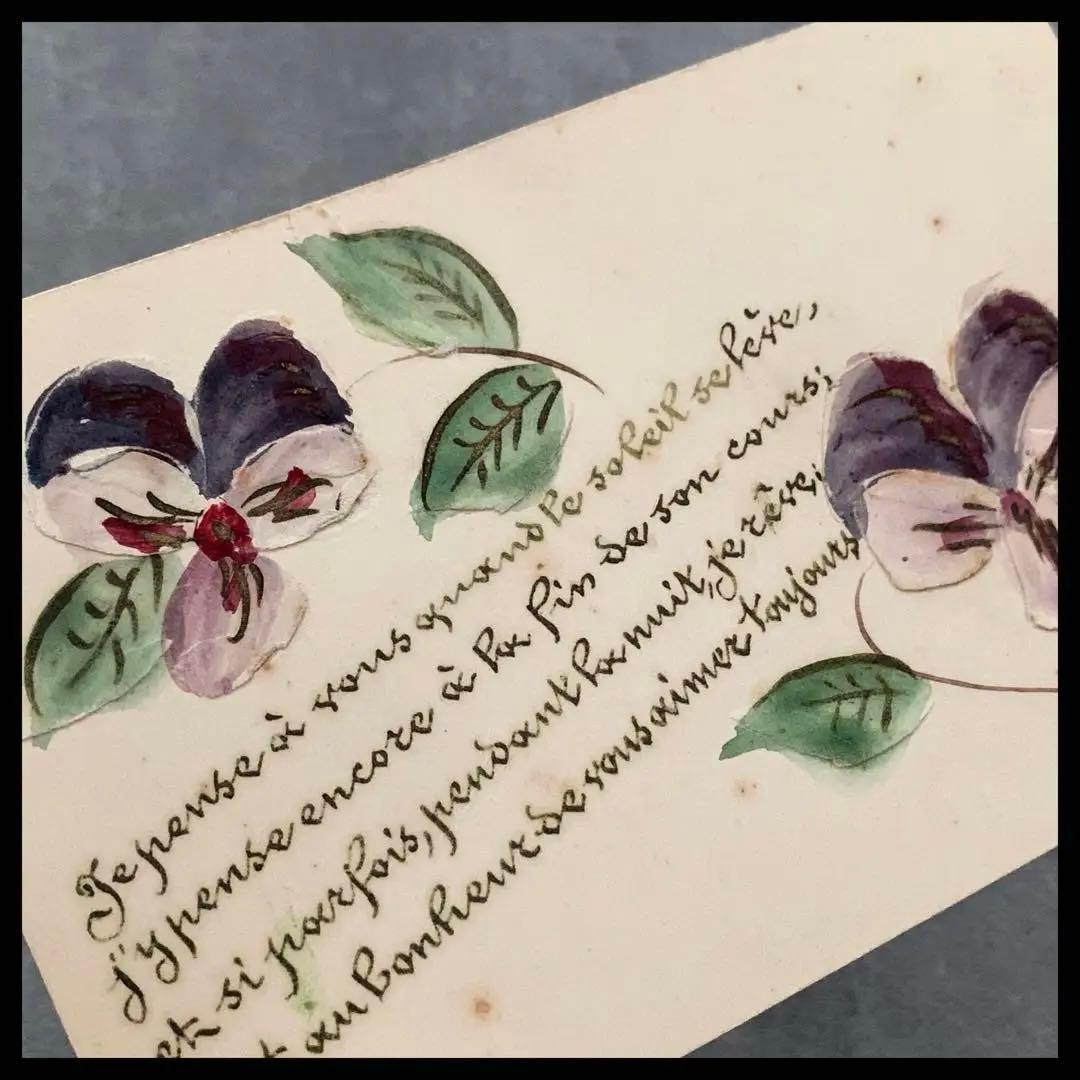 Je pense à vous quand le soleil se lève,
j'y pense encore à la fin de son cours;
et si parfois, pendant la nuit, je rêve,
t au bonheur de vous aimer toujours